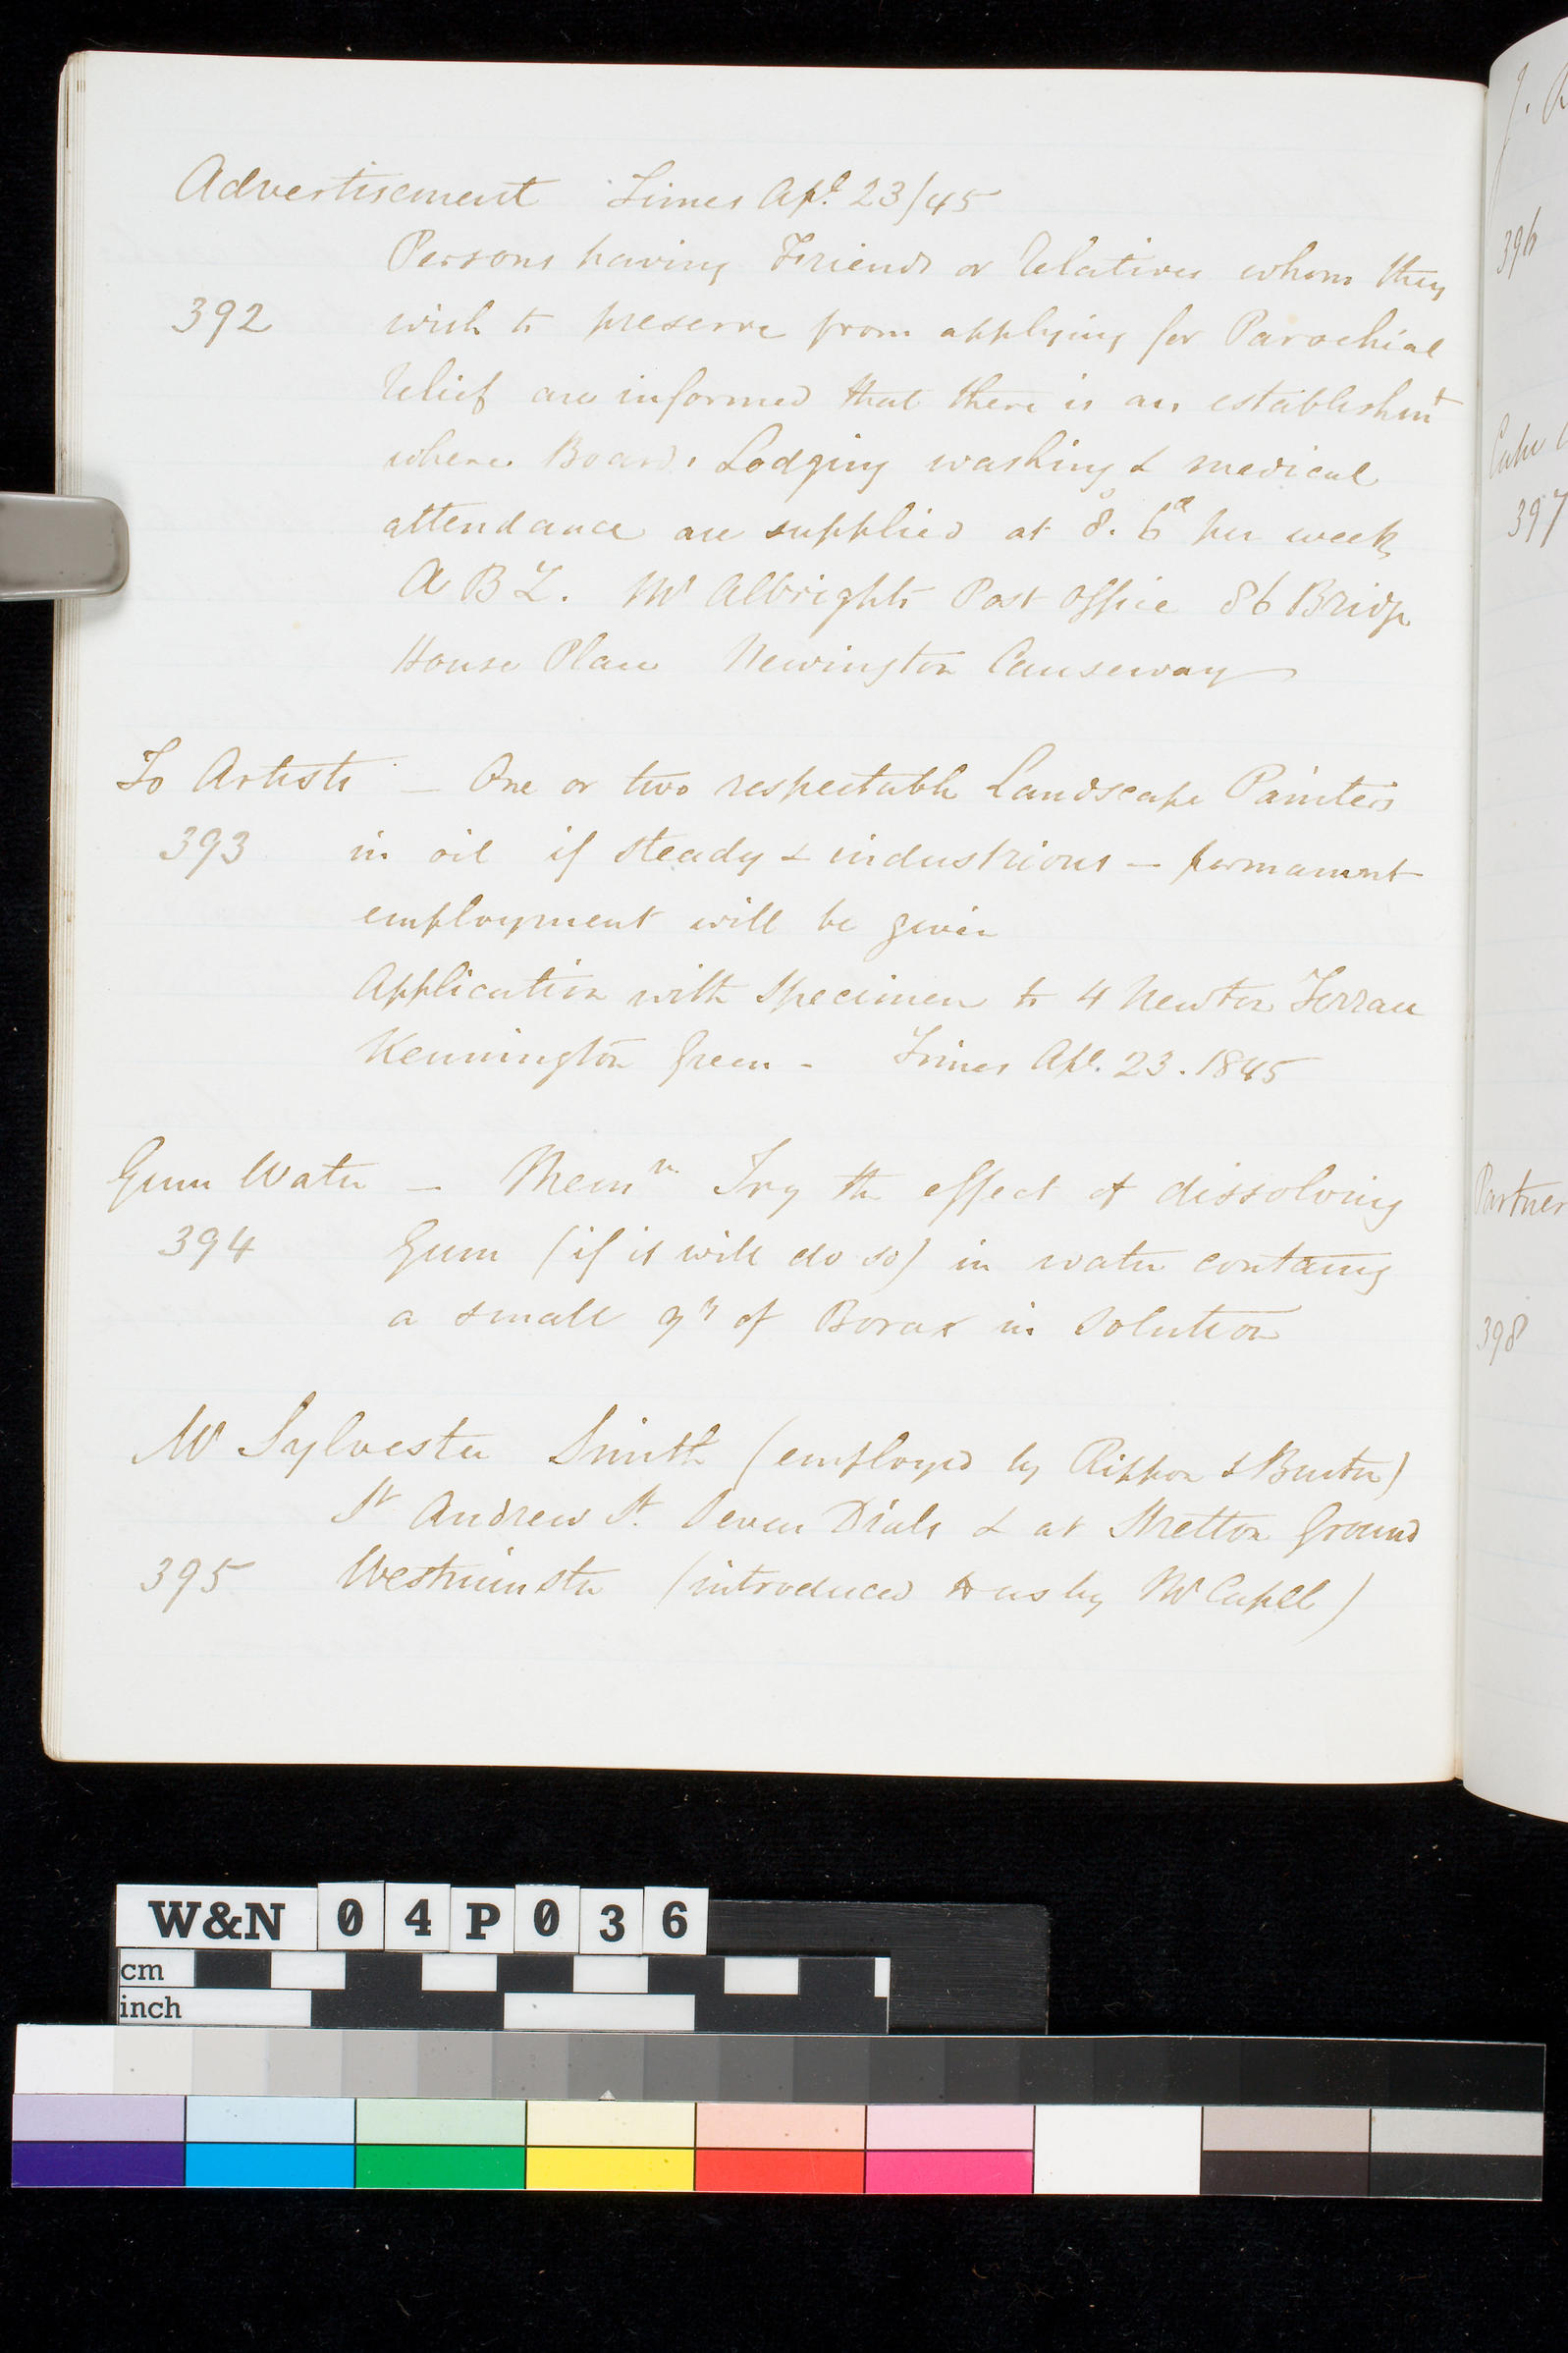 Advertisement Times Apl. 23/45
Persons having Friends or Relatives whom they
392 wish to preserve from applying for Parochial
Relief are informed that there is an establishmt
where Board, Lodging washing & medical
attendance are supplied at 8s. 6d per week
A B Z. Mr Albrights Post Office 86 Bridge
House Place Newington Causeway
To Artists — One or two respectable Landscape Painters
393 in oil if steady & industrious — permanent
employment will be given
Application with specimen to 4 Newton Terrace
Kennington Green - Times Apl. 23. 1845
Gum Water — Memn. Try the effect of dissolving
394 Gum (if it will do so) in water containg
a small qy of Borax in solution
Mr Sylvester Smith (employed by Rippon & Burton)
St Andrew St. Seven Dials & at Stretton Ground
395 Westminster (introduced to us by Mr Capell)
396
397
Partner
398
W&N 04P036
cm
inch